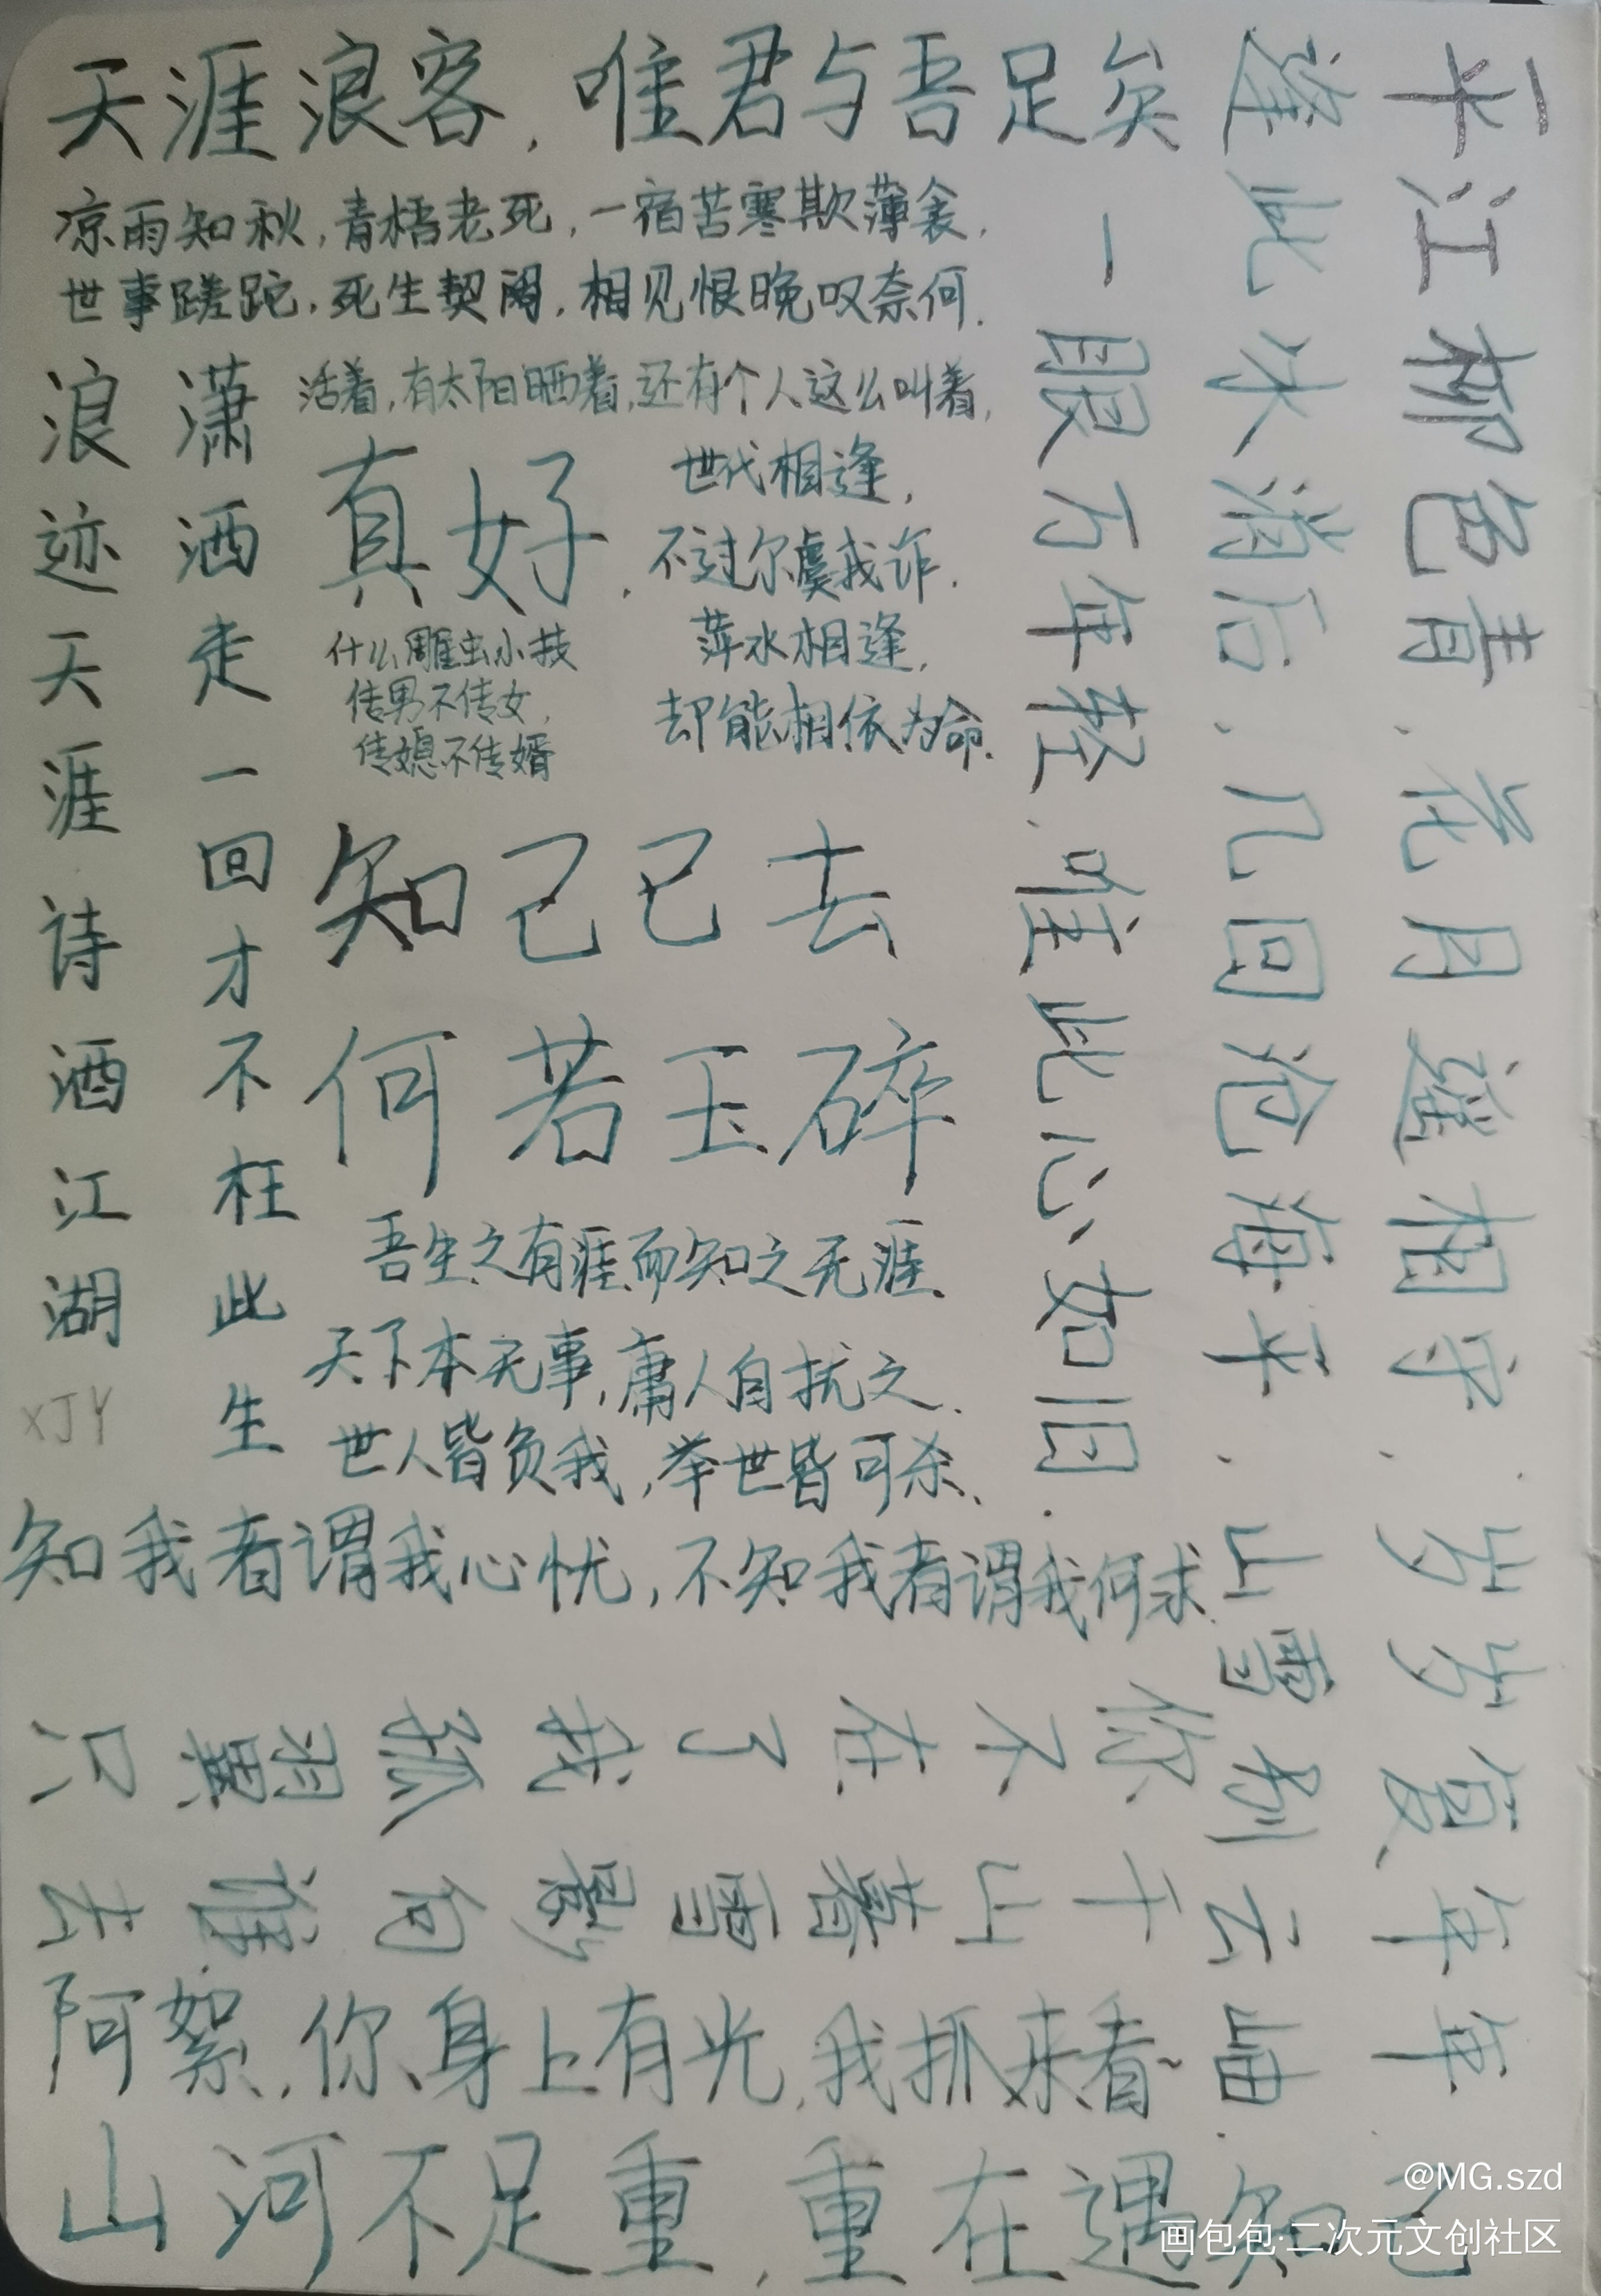 天涯浪客，唯君与吾足矣
凉雨知秋，青梧老死，一宿苦寒欺薄衾，
世事蹉跎，死生契阔，相见恨晚叹奈何．
活着，有太阳晒着，还有个人这么叫着，
真好．
世代相逢，
不过尔虞我诈．
萍水相逢，
却能相依为命．
什么雕虫小技
传男不传女，
传媳不传婿
潇洒走一回才不枉此生
浪迹天涯诗酒江湖
XJY
知己已去
何若玉碎
吾生之有涯而知之无涯、
天下本无事，庸人自扰之．
世人皆负我，举世皆可杀、
知我者谓我心忧，不知我者谓我何求．
平江柳色青，花月遥相守．岁岁复年年，
逢此冰消后，几回沧海平．山雪别云岫，
一眼万年轻，唯此心如旧．
你不在了我孤翼只
千山暮雪影向谁去
阿絮，你身上有光，我抓来看~
山河不足重，重在遇知己
@MG.szd
画包包·二次元文创社区